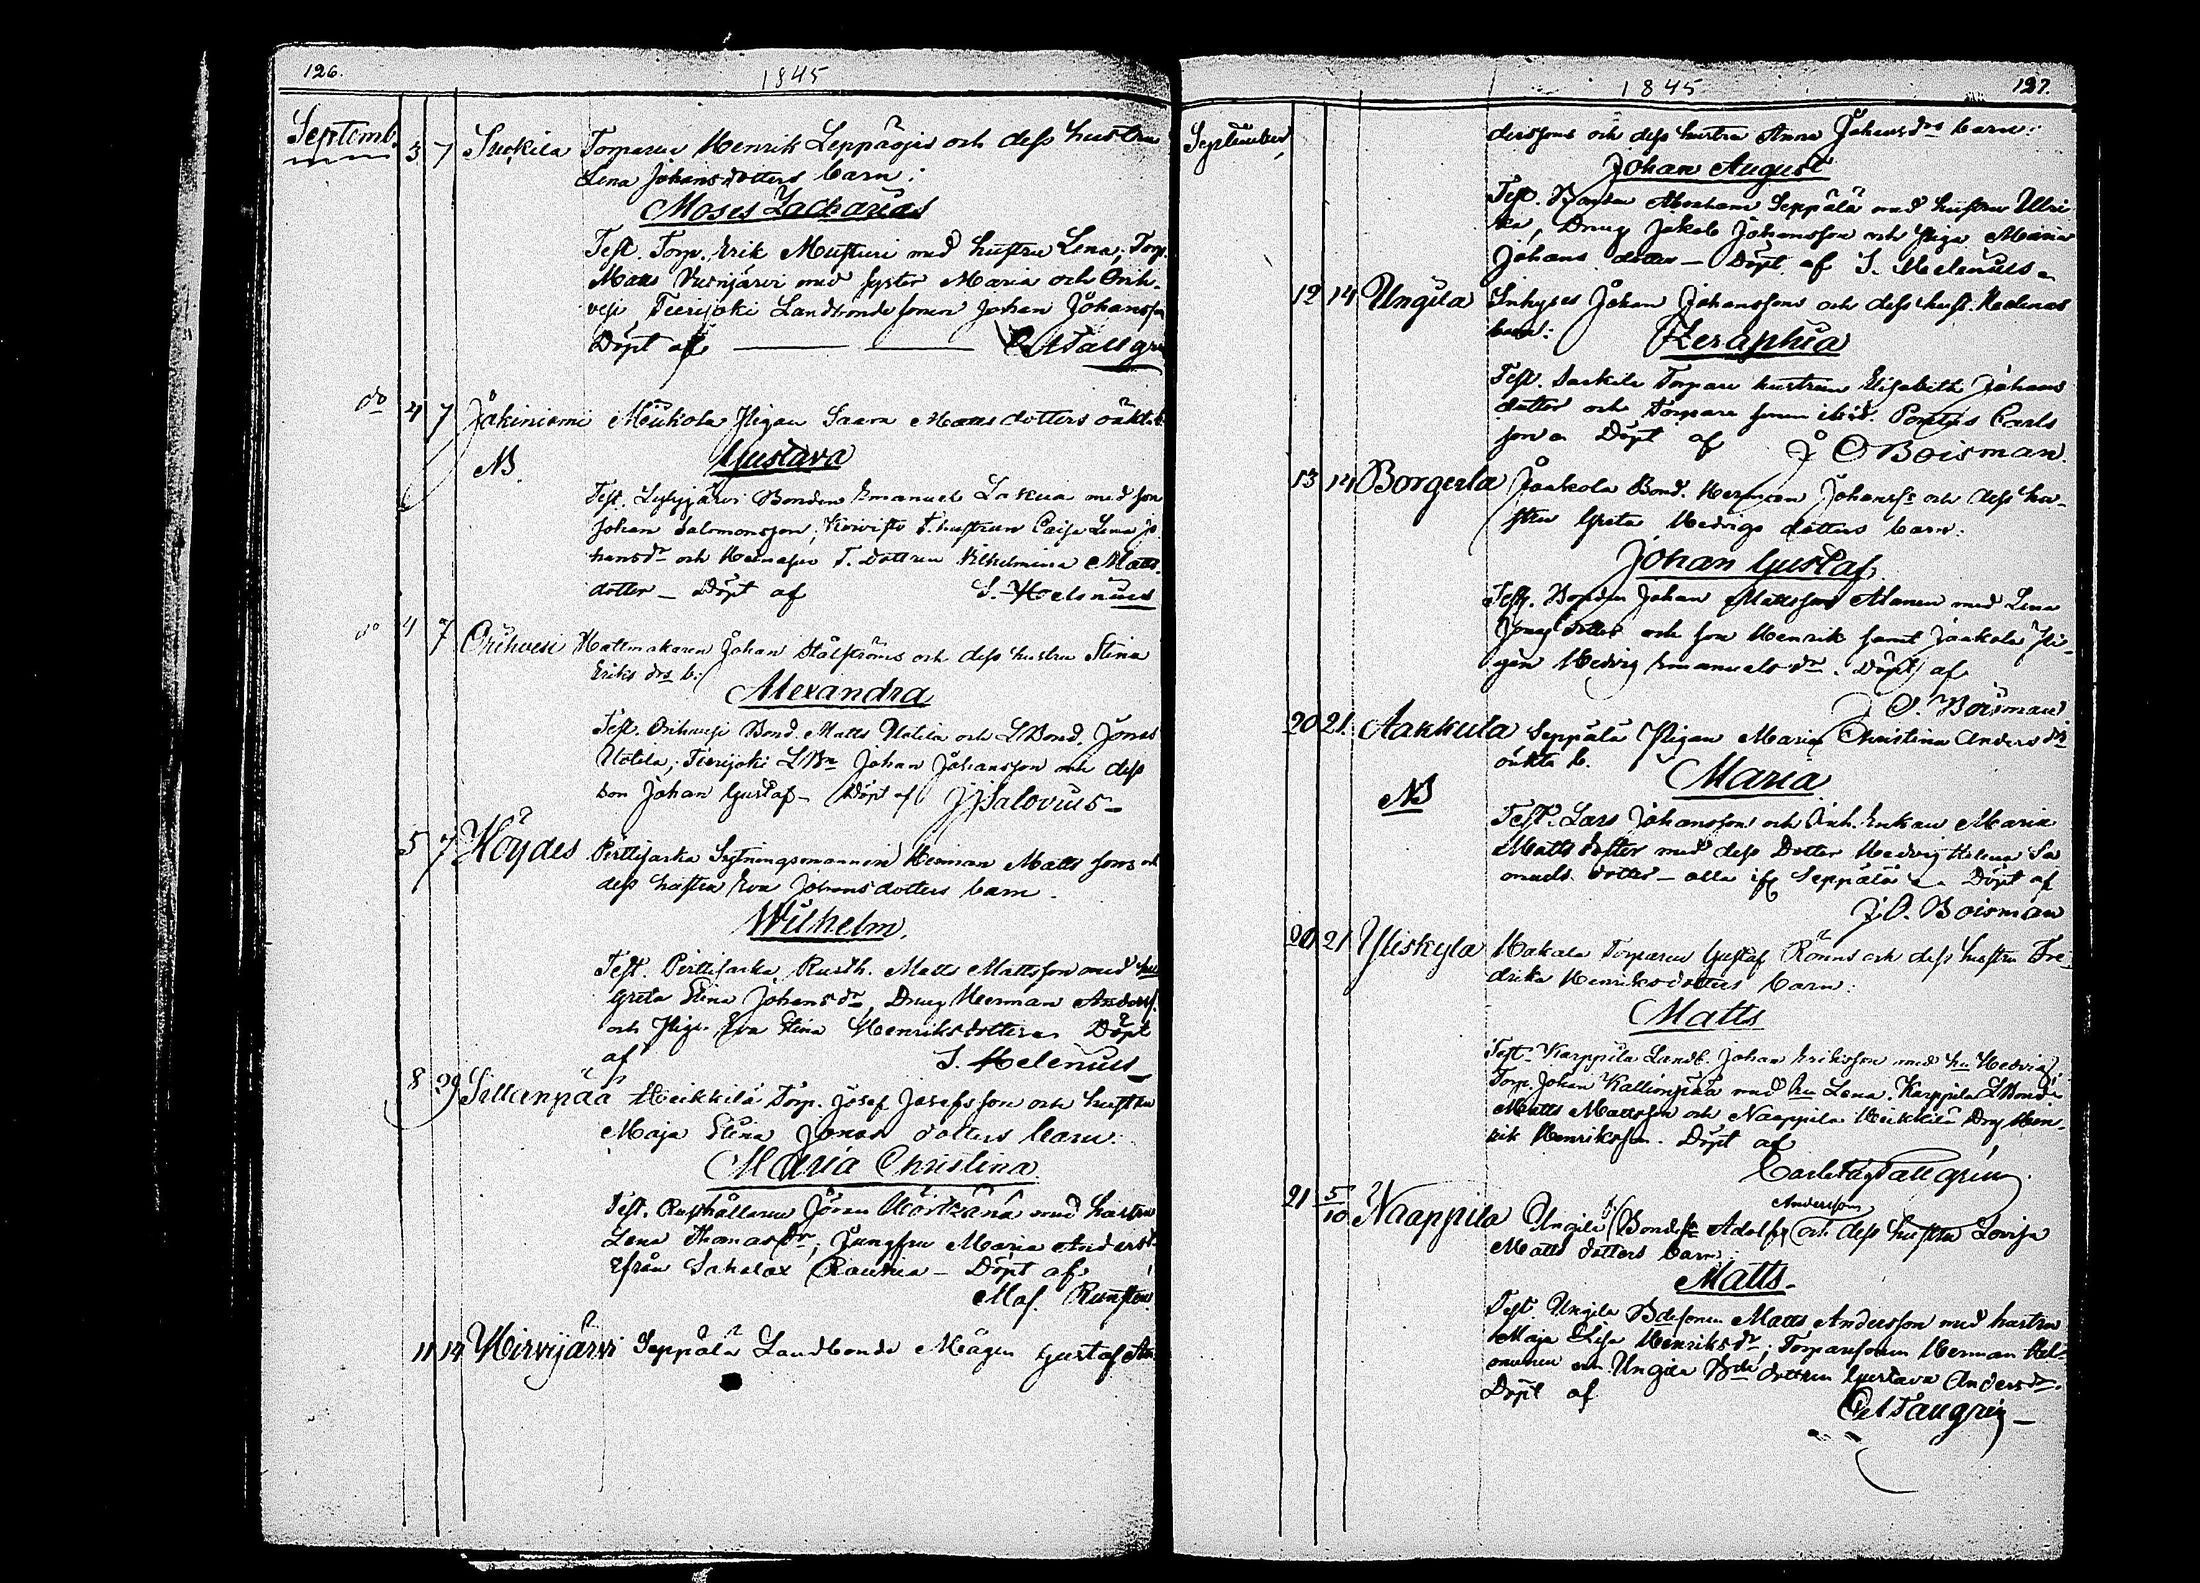 126.
1845
Septemb.
3 7 Suckila Torparen Henrik Leppäojas och dess hustru
Lena Johansdotters barn:
Moses Zacharias
Test. Torp. Erik Musturi med hustru Lena, Torp.
Matts med syster Maria och Orih-
vesi Teerijoki Landbonde sonen Johan Johansson
Döpt af CATallgre
do 4 7 Jäkiniemi Meukola Pigan Saara Matts dotters oäkt. b.
NB. Gustava
Test. Sykyjärvi Bonden Emanuel Lakua med son
Johan Salomonsson, Koivisto T. hustrun Caisa Lena Jo-
hansdr och T. dottren Vilhelmina Matts-
dotter – Döpt af S. Helenius
do 4 7 Orihvesi Hattmakaren Johan Stålströms och dess hustru Stina
Eriks drs b:
Alexandra
Test. Orihvesi Bond. Matts Uotila och LBond. Jonas
Uotila, Tierijoki LBn Johan Johansson och dess
son Johan Gustaf – Döpt af J Salovius –
5 7 Höydes Perttisaska Sytningsmannen Herman Matts sons och
dess hustru Eva Johansdotters barn.
Wilhelm.
Test. Perttisaska Rusth. Matts Mattsson med hu
Greta Stina Johansdr, Dreng Herman Anderss.
och Piga Eva Stina Henriksdotter Döpt
af S. Helenius
8 29 Sillanpää Heikkilä Torp. Josef Josefsson och hustru
Maja Stina Jonas dotters barn.
Maria Christina
Test. Rusthållaren Jöran Mörtzänä med hustru
Lena Thomasdr, Jungfru Maria Andersd.
ifrån Sahalax – Döpt af
Mas. Runsten
11 14 Hirvijärvi Seppälä Landbonde Mågen Gustaf An-
1845
127.
September
derssons och dess hustru Anna Johansdrs barn:
Johan August
Test. Bonden Abraham Seppälä med hustru Ulri
ka, Dreng Jakob Johansson och Piga Maria
Johans dotter – Döpt af S. Helenius
12 14 Ungila Inhyses Johan Johanssons och dess hust. Hedenas
barn: Zeraphia
Test. Torpare hustrun Elisabeth Johans
dotter och Torpare sonen ibid. Pontus Carls
son Döpt af J O Boisman.
13 14 Borgerla Jaakola Bond. Herman Johanss. och dess hu-
stru Greta Hedvigs dotters barn:
Johan Gustaf
Test. Bonden Johan Mattsson Alanen med Lena
Jonas dotter och son Henrik samt Jaakola Pi-
gan Hedvig Emanuelsdr. Döpt af
J O. Boisman
20 21. Aakkula Seppälä Pigan Maria Christina Andersdrs
oäkta b.
NB Maria
Test. Lars Johansson och Enkan Maria
Matts dotter med dess Dotter Hedvig Helena Sa
muels dotter – alla ifr. Seppälä Döpt af
J.O. Boisman
20 21 Yliskylä Hakala Torparen Gustaf Rönns och dess hustru Fre-
drika Henriksdotters barn:
Matts
Test. Karppila Landb. Johan Eriksson med hu Hedvig,
Torp. Johan Kallionpää med hu Lena, Karppila LBond
Matts Mattsson och Naappila Heikkilä Drg Hen-
rik Henriksson. Döpt af
Carl Aug Tallgrén
21 5/10 Naappila Ungila Bonde Adolf Andersson och dess hustru Lovisa
Matts dotters barn
Matts.
Test. Ungila Bdesonen Matts Andersson med hustru
Maja Lisa Henriksdr, Torparesonen Herman Hel-
onen och Ungila Bde dottren Gustava Andersdr.
Döpt af CATallgrén –